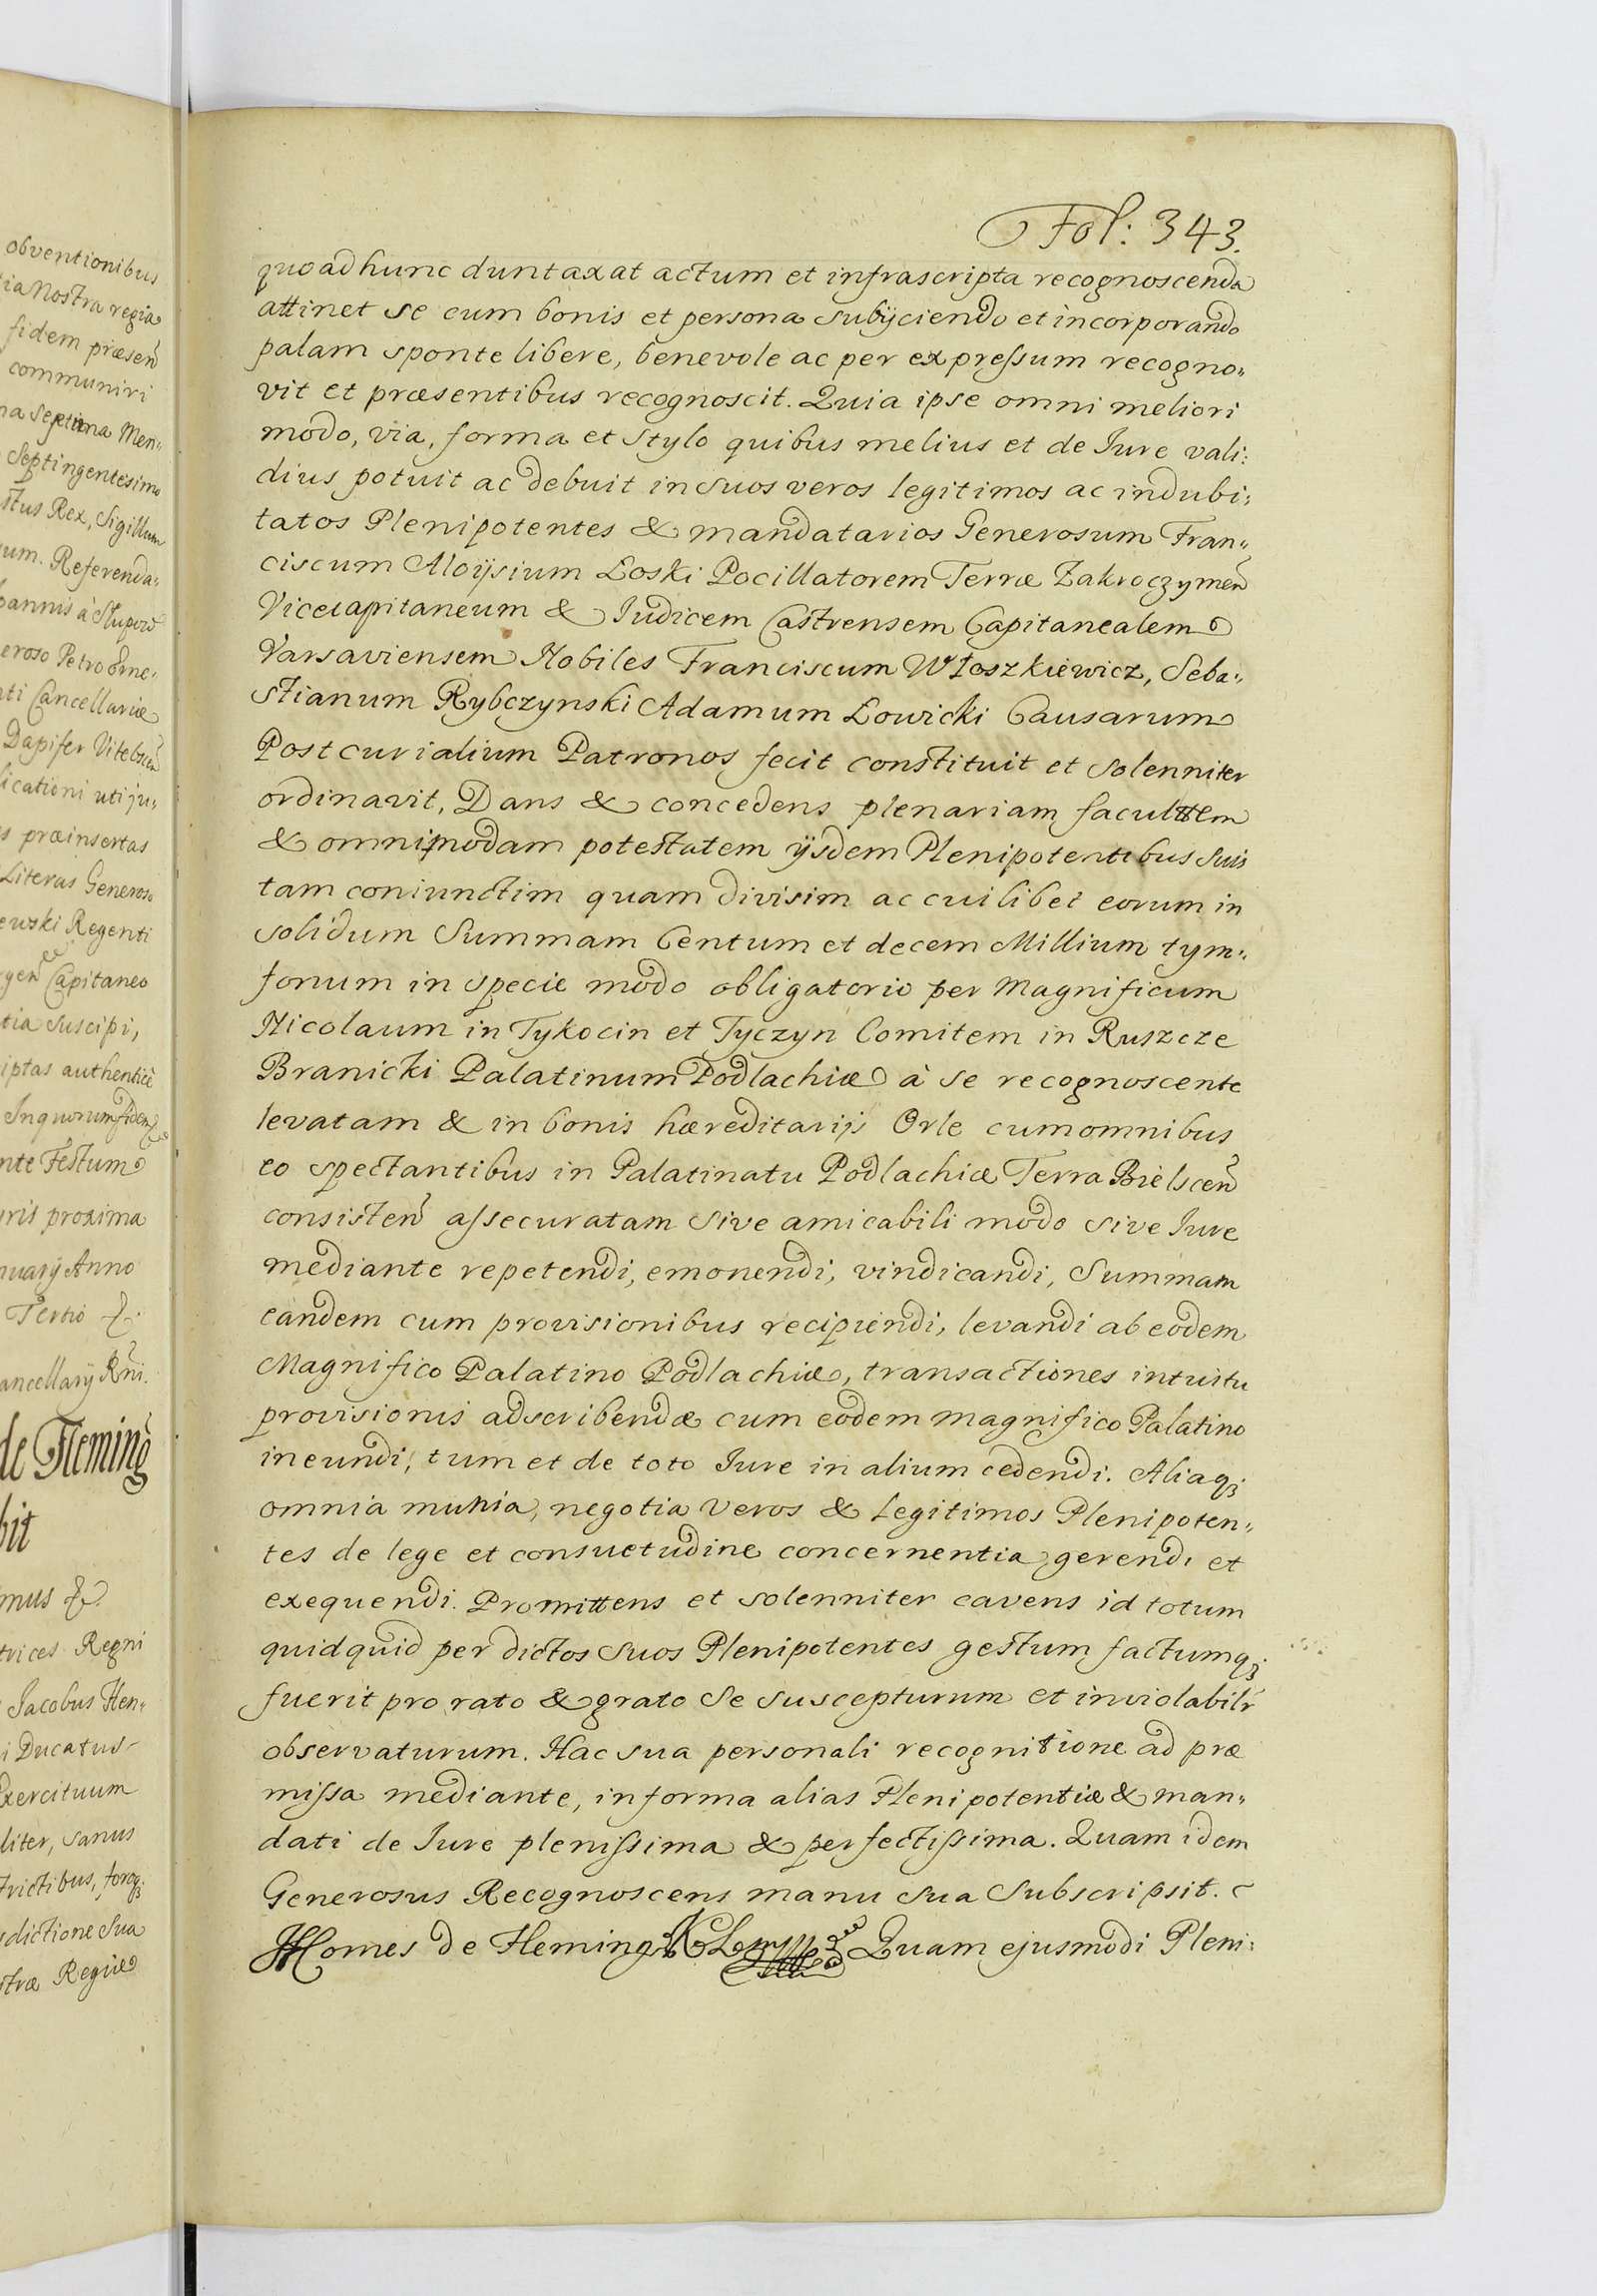 obventionibus
tia Nostra regia
fidem præsen
communiri
na Septima Men„
Septingentesimo
stus Rex, Sigillum
um. Referenda„
oannis à Slupow
eroso Petro Orne„
ati Cancellariæ
Dapifer Vitebscen
licationi uti ju„
s præinsertas
Literas Generoso
ewski Regenti
gen Capitaneo
tia suscipi,
iptas authentice
In quorum fidem
nte Festum
ris proxima
nuarij Anno
Tertio
ancellarij Rni.
de Fleming
bit
mus &
trices Regni
Jacobus Hen„
i Ducatus
Exercituum
liter, sanus
trictibus, foroq3
dictione sua
stræ Regiæ
Fol: 343.
quo ad hunc duntaxat actum et infrascripta recognoscenda
attinet se cum bonis et persona subijciendo et incorporando
palam sponte libere, benevole ac per expressum recogno„
vit et præsentibus recognoscit. Quia ipse omni meliori
modo, via, forma et stylo quibus melius et de Jure vali:
dius potuit ac debuit in suos veros legitimos ac indubi:
tatos Plenipotentes & mandatarios Generosum Fran„
ciscum Aloijsium Łoski Pocillatorem Terræ Zakroczymen
Vicecapitaneum & Judicem Castrensem Capitanealem
Varsaviensem Nobiles Franciscum Włoszkiewicz, Seba„
stianum Rybczynski Adamum Łowicki Causarum
Postcurialium Patronos fecit constituit et solenniter
ordinavit, Dans & concedens plenariam facultem
& omnimodam potestatem ijsdem Plenipotentibus suis
tam coniunctim quam divisim ac cuilibet eorum in
solidum Summam Centum et decem Millium tym„
fonum in specie modo obligatorio per Magnificum
Nicolaum in Tykocin et Tyczyn Comitem in Ruszcze
Branicki Palatinum Podlachiæ à se recognoscente
levatam & in bonis hæreditarijs Orle cum omnibus
eo spectantibus in Palatinatu Podlachiæ Terra Bielscen
consisten assecuratam sive amicabili modo sive Jure
mediante repetendi, emonendi, vindicandi, Summam
eandem cum provisionibus recipiendi, levandi ab eodem
Magnifico Palatino Podlachiæ, transactiones intuitu
provisionis adscribendæ cum eodem magnifico Palatino
ineundi, tum et de toto Jure in alium cedendi. Aliaq3
omnia munia, negotia veros & Legitimos Plenipoten„
tes de lege et consuetudine concernentia gerendi et
exequendi. Promittens et solenniter cavens id totum
quidquid per dictos suos Plenipotentes gestum factumq3
fuerit pro rato & grato se suscepturum et inviolabilr
observaturum. Hac sua personali recognitione ad præ
missa mediante, in forma alias Plenipotentiæ & man„
dati de Jure plenissima & perfectissima. Quam idem
Generosus Recognoscens manu sua subscripsit.
JHComes de Fleming Quam ejusmodi Pleni: